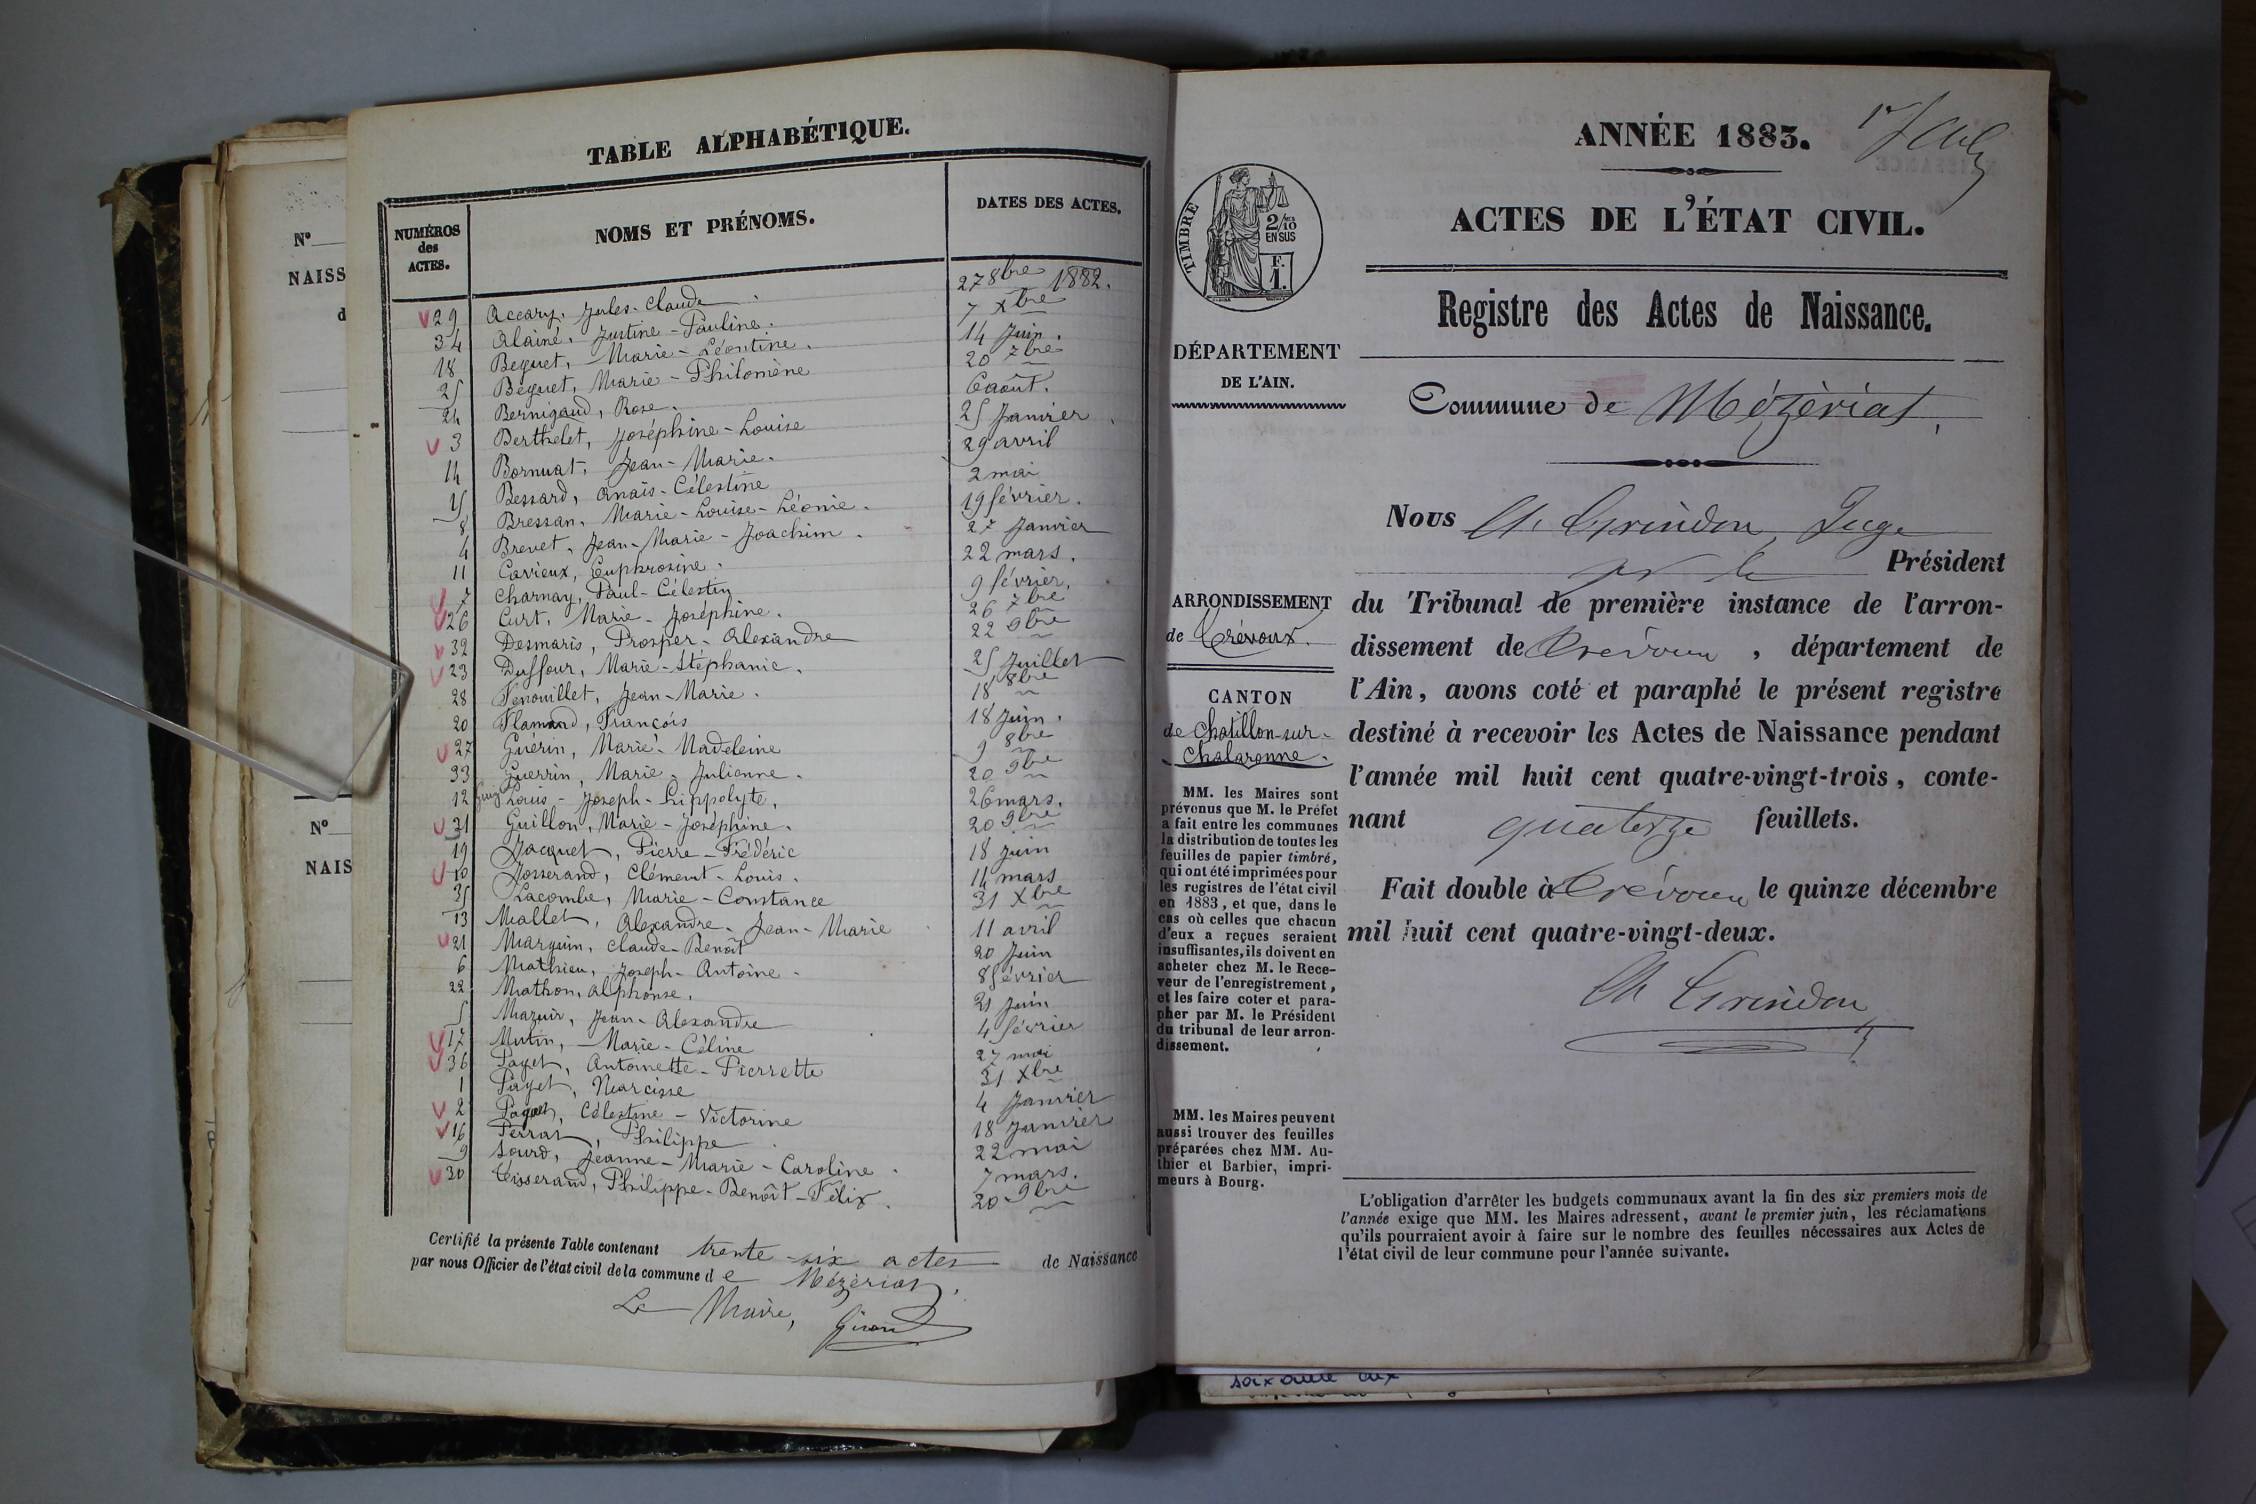 N°
NAISS
d
N°
NAIS
TABLE ALPHABÉTIQUE.
NUMÉROS des ACTES.
NOMS ET PRÉNOMS.
DATES DES ACTES.
29 Accary, Jules-Claude 27 8bre 1882.
34 Alainé, Justine-Pauline. 7 Xbre
18 Beguet, Marie-Léontine. 14 Juin.
25 Beguet, Marie-Philomène 20 7bre
24 Bernigaud, Rose. 6 août.
3 Berthelet, Joséphine-Louise 25 Janvier
14 Bornuat, Jean-Marie. 29 avril
15 Bessard, Anaïs-Célestine 2 mai
8 Bressan, Marie-Louise-Léonie. 19 février.
4 Brevet, Jean-Marie-Joachim. 27 Janvier
11 Cavieux, Euphrosine. 22 mars.
7 Charnay, Paul-Célestin 9 février.
26 Curt, Marie-Joséphine. 26 7bre
32 Desmaris, Prosper-Alexandre 22 9bre
23 Duffour, Marie-Stéphanie. 25 Juillet
28 Fenouillet, Jean-Marie. 18 8bre
20 Flamand, François 18 Juin.
27 Guérin, Marie-Madeleine 9 8bre
33 Guerrin, Marie-Julienne. 20 9bre
12 Louis-Joseph-hippolyte, 26 mars.
31 Guillon, Marie-Joséphine. 20 9bre
19 Jacquet, Pierre-Frédéric 18 Juin
10 Josserand, Clément-Louis. 14 mars
35 Lacombe, Marie-Constance 31 Xbre
13 Mallet, Alexandre-Jean-Marie 11 avril
21 Marguin, Claude-Benoît 20 Juin
6 Mathieu, Joseph-Antoine 8 février
22 Mathon, Alphonse. 21 Juin
5 Mazuir, Jean-Alexandre 4 février
17 Mutin, Marie-Céline 27 mai
36 Payet, Antoinette-Pierrette 31 Xbre
1 Payet, Narcisse 4 Janvier
2 Paquet, Célestine-Victorine 18 Janvier
16 Perrat, Philippe 22 mai
9 Sourd, Jeanne-Marie-Caroline. 7 mars.
30 Tisserand, Philippe-Benoît-Félix. 20 9bre
Certifié la présente Table contenant trente-six actes de Naissance
par nous Officier de l'état civil de la commune de Mézériat.
Le Maire,
ANNÉE 1883.
ACTES DE L'ÉTAT CIVIL.
Registre des Actes de Naissance.
TIMBRE
2/10
EN SUS
F.
1.
DÉPARTEMENT
DE L'AIN.
Commune de Mézériat,
Nous Ch. Grindon, Juge
pr le Président
du Tribunal de première instance de l'arron-
dissement de Trévoux, département de
l'Ain, avons coté et paraphé le présent registre
destiné à recevoir les Actes de Naissance pendant
l'année mil huit cent quatre-vingt-trois, conte-
nant quatorze feuillets.
Fait double à Trévoux le quinze décembre
mil huit cent quatre-vingt-deux.
Ch Grindon
ARRONDISSEMENT
de Trévoux.
CANTON
de Chatillon-sur-
Chalaronne.
MM. les Maires sont
prévenus que M. le Préfet
a fait entre les communes
la distribution de toutes les
feuilles de papier timbré,
qui ont été imprimées pour
les registres de l'état civil
en 1883, et que, dans le
cas où celles que chacun
d'eux a reçues seraient
insuffisantes, ils doivent en
acheter chez M. le Rece-
veur de l'enregistrement,
et les faire coter et para-
pher par M. le Président
du tribunal de leur arron-
dissement.
MM. les Maires peuvent
aussi trouver des feuilles
préparées chez MM. Au-
thier et Barbier, impri-
meurs à Bourg.
L'obligation d'arrêter les budgets communaux avant la fin des six premiers mois de
l'année exige que MM. les Maires adressent, avant le premier juin, les réclamations
qu'ils pourraient avoir à faire sur le nombre des feuilles nécessaires aux Actes de
l'état civil de leur commune pour l'année suivante.